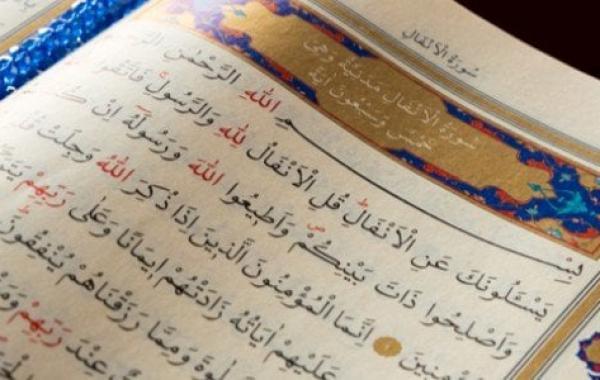 سُورَةُ الْاَنْفَالِ
سُورَةُ الْاَنْفَالِ مَدَنِيَّةٌ وَهِيَ
خَمْسٌ وَسَبْعُونَ اٰيَةً
بِسْمِ اللّٰهِ الرَّحْمٰنِ
يَسْـَٔلُونَكَ عَنِ الْاَنْفَالِ قُلِ الْاَنْفَالُ لِلّٰهِ وَالرَّسُولِ فَاتَّقُوا
وَاَصْلِحُوا ذَاتَ بَيْنِكُمْ وَاَطِيعُوا اللّٰهَ وَرَسُولَهُ اِنْ
مُؤْمِنِينَ ١ اِنَّمَا الْمُؤْمِنُونَ الَّذِينَ اِذَا ذُكِرَ اللّٰهُ وَجِلَتْ
عَلَيْهِمْ اٰيَاتُهُ زَادَتْهُمْ اِيمَانًا وَعَلٰى رَبِّهِمْ
وَمِمَّا رَزَقْنَاهُمْ يُنْفِقُونَ
عِنْدَ رَبِّهِمْ